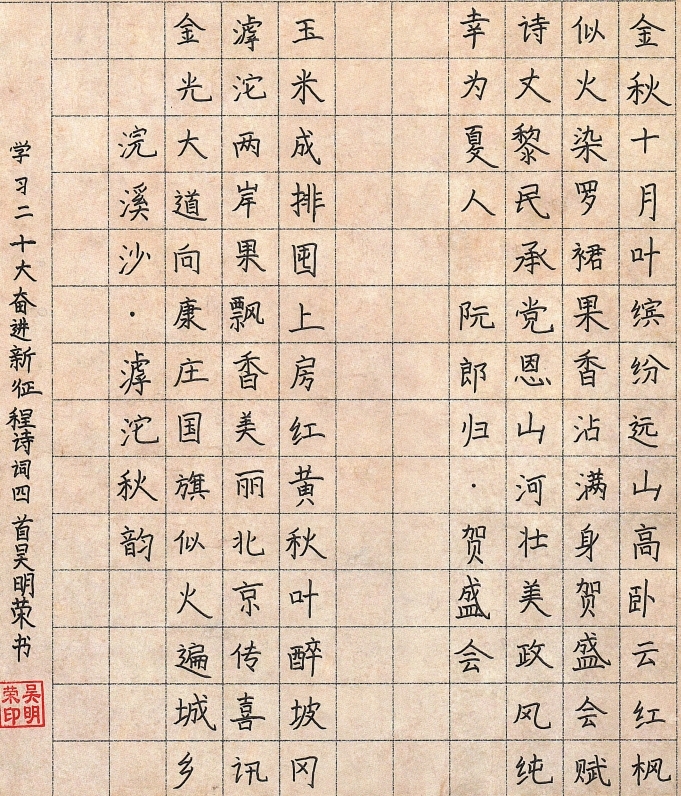 金秋十月叶缤纷远山高卧云红枫
似火染罗裙果香沾满身贺盛会赋
诗丈黎民承党恩山河壮美政风纯
幸为夏人 阮郎归·贺盛会
玉米成排囤上房红黄秋叶醉坡冈
滹沱两岸果飘香美丽北京传喜讯
金光大道向康庄国旗似火遍城乡
浣溪沙·滹沱秋韵
学习二十大奋进新征程诗词四首吴明荣书
吴明荣印